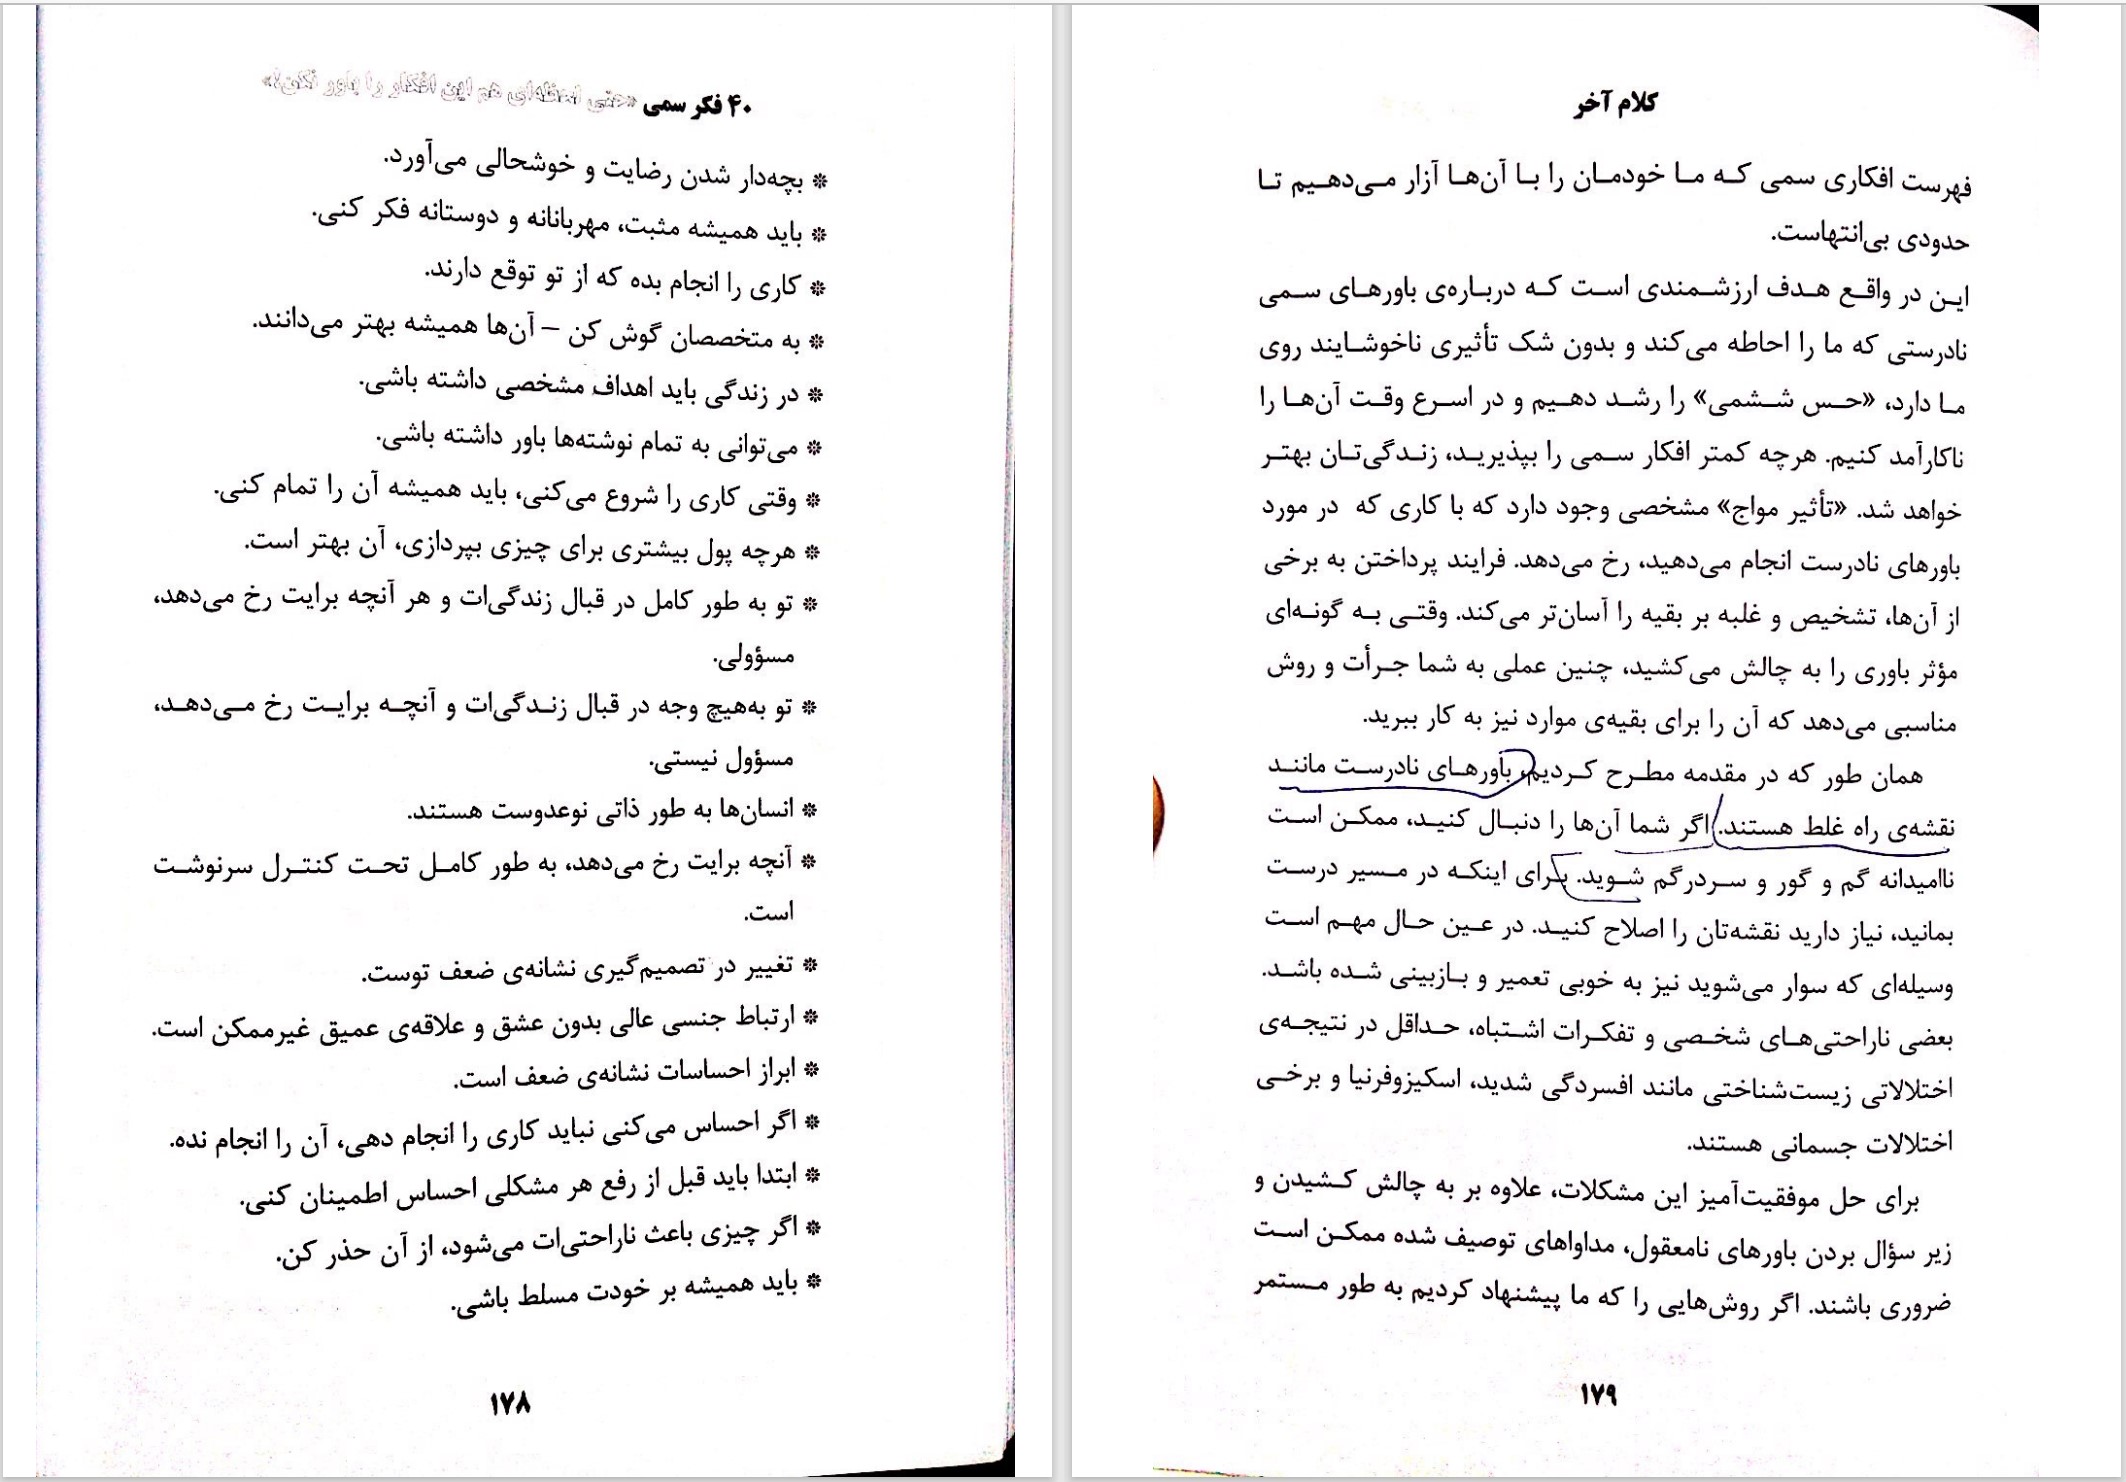 ۴۰ فکر سمی «حتی لحظه‌ای هم این افکار را باور نکن!»
❊ بچه‌دار شدن رضایت و خوشحالی می‌آورد.
❊ باید همیشه مثبت، مهربانانه و دوستانه فکر کنی.
❊ کاری را انجام بده که از تو توقع دارند.
❊ به متخصصان گوش کن – آن‌ها همیشه بهتر می‌دانند.
❊ در زندگی باید اهداف مشخصی داشته باشی.
❊ می‌توانی به تمام نوشته‌ها باور داشته باشی.
❊ وقتی کاری را شروع می‌کنی، باید همیشه آن را تمام کنی.
❊ هرچه پول بیشتری برای چیزی بپردازی، آن بهتر است.
❊ تو به طور کامل در قبال زندگی‌ات و هر آنچه برایت رخ می‌دهد،
مسؤولی.
❊ تو به‌هیچ وجه در قبال زندگی‌ات و آنچه برایت رخ می‌دهد،
مسؤول نیستی.
❊ انسان‌ها به طور ذاتی نوعدوست هستند.
❊ آنچه برایت رخ می‌دهد، به طور کامل تحت کنترل سرنوشت
است.
❊ تغییر در تصمیم‌گیری نشانه‌ی ضعف توست.
❊ ارتباط جنسی عالی بدون عشق و علاقه‌ی عمیق غیرممکن است.
❊ ابراز احساسات نشانه‌ی ضعف است.
❊ اگر احساس می‌کنی نباید کاری را انجام دهی، آن را انجام نده.
❊ ابتدا باید قبل از رفع هر مشکلی احساس اطمینان کنی.
❊ اگر چیزی باعث ناراحتی‌ات می‌شود، از آن حذر کن.
❊ باید همیشه بر خودت مسلط باشی.
۱۷۸
کلام آخر
فهرست افکاری سمی که ما خودمان را با آن‌ها آزار می‌دهیم تا
حدودی بی‌انتهاست.
این در واقع هدف ارزشمندی است که درباره‌ی باورهای سمی
نادرستی که ما را احاطه می‌کند و بدون شک تأثیری ناخوشایند روی
ما دارد، «حس ششمی» را رشد دهیم و در اسرع وقت آن‌ها را
ناکارآمد کنیم. هرچه کمتر افکار سمی را بپذیرید، زندگی‌تان بهتر
خواهد شد. «تأثیر مواج» مشخصی وجود دارد که با کاری که در مورد
باورهای نادرست انجام می‌دهید، رخ می‌دهد. فرایند پرداختن به برخی
از آن‌ها، تشخیص و غلبه بر بقیه را آسان‌تر می‌کند. وقتی به گونه‌ای
مؤثر باوری را به چالش می‌کشید، چنین عملی به شما جرأت و روش
مناسبی می‌دهد که آن را برای بقیه‌ی موارد نیز به کار ببرید.
همان طور که در مقدمه مطرح کردیم، باورهای نادرست مانند
نقشه‌ی راه غلط هستند. اگر شما آن‌ها را دنبال کنید، ممکن است
ناامیدانه گم و گور و سردرگم شوید. برای اینکه در مسیر درست
بمانید، نیاز دارید نقشه‌تان را اصلاح کنید. در عین حال مهم است
وسیله‌ای که سوار می‌شوید نیز به خوبی تعمیر و بازبینی شده باشد.
بعضی ناراحتی‌های شخصی و تفکرات اشتباه، حداقل در نتیجه‌ی
اختلالاتی زیست‌شناختی مانند افسردگی شدید، اسکیزوفرنیا و برخی
اختلالات جسمانی هستند.
برای حل موفقیت‌آمیز این مشکلات، علاوه بر به چالش کشیدن و
زیر سؤال بردن باورهای نامعقول، مداواهای توصیف شده ممکن است
ضروری باشند. اگر روش‌هایی را که ما پیشنهاد کردیم به طور مستمر
۱۷۹